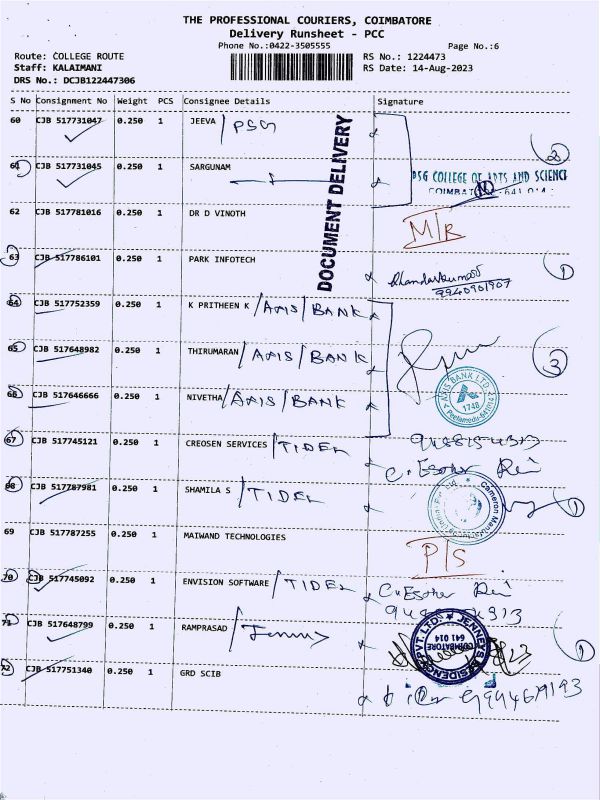 THE PROFESSIONAL COURIERS, COIMBATORE
Delivery Runsheet - PCC
Phone No.:0422-3505555
Page No.:6
Route: COLLEGE ROUTE
RS No.: 1224473
Staff: KALAIMANI
RS Date: 14-Aug-2023
DRS No.: DCJB122447306
S No Consignment No Weight PCS Consignee Details Signature
60 CJB 517731047 0.250 1 JEEVA / PSG
61 CJB 517731045 0.250 1 SARGUNAM
2
PSG COLLEGE OF ARTS AND SCIENCE
COIMBATORE - 641 014
DOCUMENT DELIVERY
62 CJB 517781016 0.250 1 DR D VINOTH M/R
63 CJB 517786101 0.250 1 PARK INFOTECH
9940901907
1
64 CJB 517752359 0.250 1 K PRITHEEN K / AXIS / BANK
65 CJB 517648982 0.250 1 THIRUMARAN / AXIS / BANK
3
66 CJB 517646666 0.250 1 NIVETHA / AXIS / BANK
AXIS BANK LTD
1748
Peelamedu-641014
67 CJB 517745121 0.250 1 CREOSEN SERVICES / TIDEL
C. Esther
68 CJB 517787981 0.250 1 SHAMILA S / TIDEL
1
Cameron
69 CJB 517787255 0.250 1 MAIWAND TECHNOLOGIES P/S
70 CJB 517745092 0.250 1 ENVISION SOFTWARE / TIDEL C. Esther
71 CJB 517648799 0.250 1 RAMPRASAD / Jenny
JENNEYS RESIDENCY PVT. LTD.
COIMBATORE
641 014
1
72 CJB 517751340 0.250 1 GRD SCIB